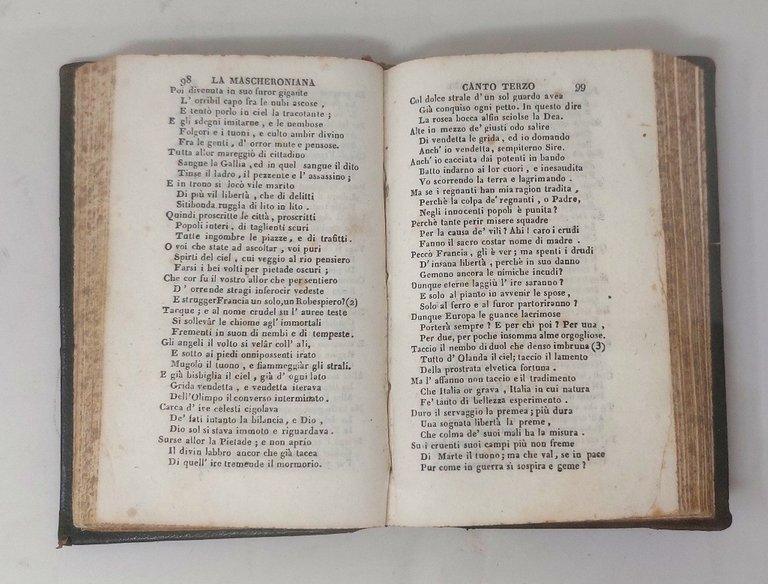 98 LA MASCHERONIANA
Poi divenuta in suo furor gigante
L' orribil capo fra le nubi ascose,
E tentò porlo in ciel la tracotante;
E gli sdegni imitarne, e le nembose
Folgori e i tuoni, e culto ambir divino
Fra le genti, d' orror mute e pensose.
Tutta allor mareggiò di cittadino
Sangue la Gallia, ed in quel sangue il dito
Tinse il ladro, il pezzente e l' assassino;
E in trono si locò vile marito
Di più vil libertà, che di delitti
Sitibonda ruggia di lito in lito.
Quindi proscritte le città, proscritti
Popoli interi, di taglienti scuri
Tutte ingombre le piazze, e di trafitti.
O voi che state ad ascoltar, voi puri
Spirti del ciel, cui veggio al rio pensiero
Farsi i bei volti per pietade oscuri;
Che cor fu il vostro allor che per sentiero
D' orrende stragi inferocir vedeste
E strugger Francia un solo, un Robespiero? (2)
Tacque; e al nome crudel su l' auree teste
Si sollevâr le chiome agl' immortali
Frementi in suon di nembi e di tempeste.
Gli angeli il volto si velâr coll' ali,
E sotto ai piedi onnipossenti irato
Mugolò il tuono, e fiammeggiâr gli strali.
E già bisbiglia il ciel, già d' ogni lato
Grida vendetta, e vendetta iterava
Dell' Olimpo il converso interminato.
Carca d' ire celesti cigolava
De' fati intanto la bilancia, e Dio,
Dio sol si stava immoto e riguardava.
Surse allor la Pietade; e non aprio
Il divin labbro ancor che già tacea
Di quell' ire tremende il mormorio.
CANTO TERZO 99
Col dolce strale d' un sol guardo avea
Già conquiso ogni petto. In questo dire
La rosea bocca alfin sciolse la Dea.
Alte in mezzo de' giusti odo salire
Di vendetta le grida, ed io domando
Anch' io vendetta, sempiterno Sire.
Anch' io cacciata dai potenti in bando
Batto indarno ai lor cuori, e inesaudita
Vo scorrendo la terra e lagrimando.
Ma se i regnanti han mia ragion tradita,
Perchè la colpa de' regnanti, o Padre,
Negli innocenti popoli è punita?
Perchè tante perir misere squadre
Per la causa de' vili? Ahi! caro i crudi
Fanno il sacro costar nome di madre.
Peccò Francia, gli è ver; ma spenti i drudi
D' insana libertà, perchè in suo danno
Gemono ancora le nimiche incudi?
Dunque eterne laggiù l' ire saranno?
E solo al pianto in avvenir le spose,
Solo al ferro e al furor partoriranno?
Dunque Europa le guance lacrimose
Porterà sempre? E per chi poi? Per una,
Per due, per poche insomma alme orgogliose.
Taccio il nembo di duol che denso imbruna (3)
Tutto d' Olanda il ciel; taccio il lamento
Della prostrata elvetica fortuna.
Ma l' affanno non taccio e il tradimento
Che Italia or grava, Italia in cui natura
Fe' tanto di bellezza esperimento.
Duro il servaggio la premea; più dura
Una sognata libertà la preme,
Che colma de' suoi mali ha la misura.
Su i cruenti suoi campi più non freme
Di Marte il tuono; ma che val, se in pace
Pur come in guerra si sospira e geme?